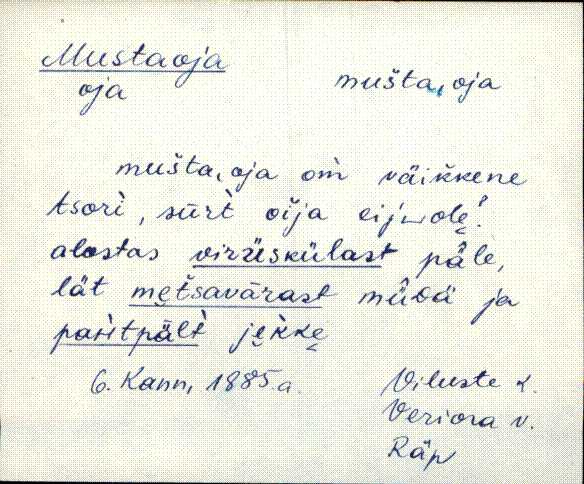 Mustaoja
oja
mušta, oja
mušta, oja om väikkene
tsori, sūrt oija eijwole!
alostas virüskülast päle,
lät metšavārast mūdä ja
paŕitpält jekke
6. Kann, 1885. a.
Viluste k.
Veriora v.
Räp